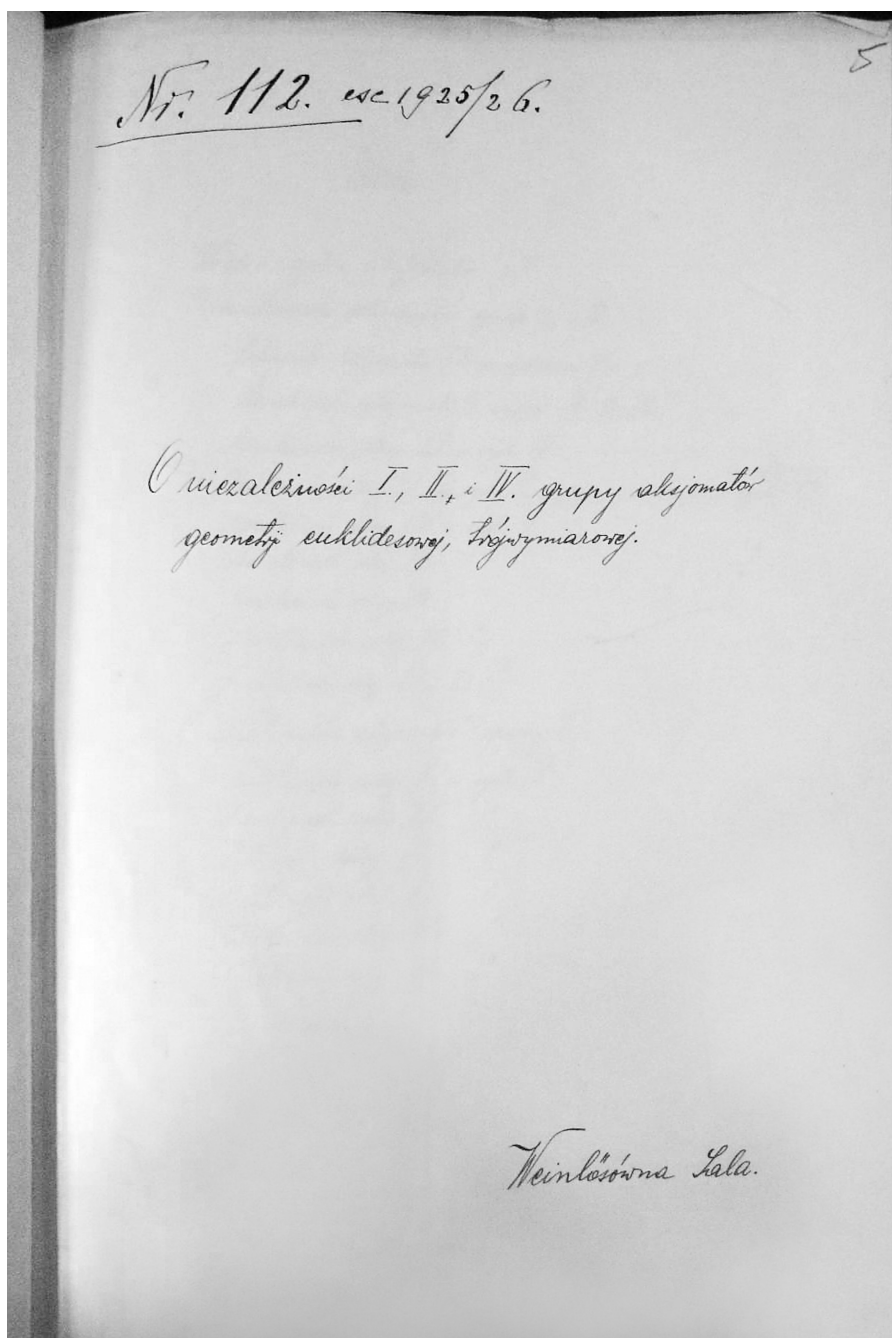 5
Nr. 112. esc 1925/26.
O niezależności I., II., i IV. grupy aksjomatów
geometrji euklidesowej, trójwymiarowej.
Weinlösówna Sala.